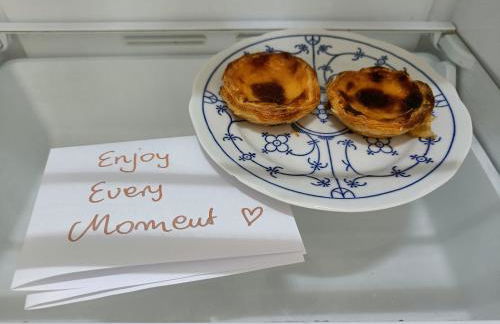 Enjoy
Every
Moment ♡